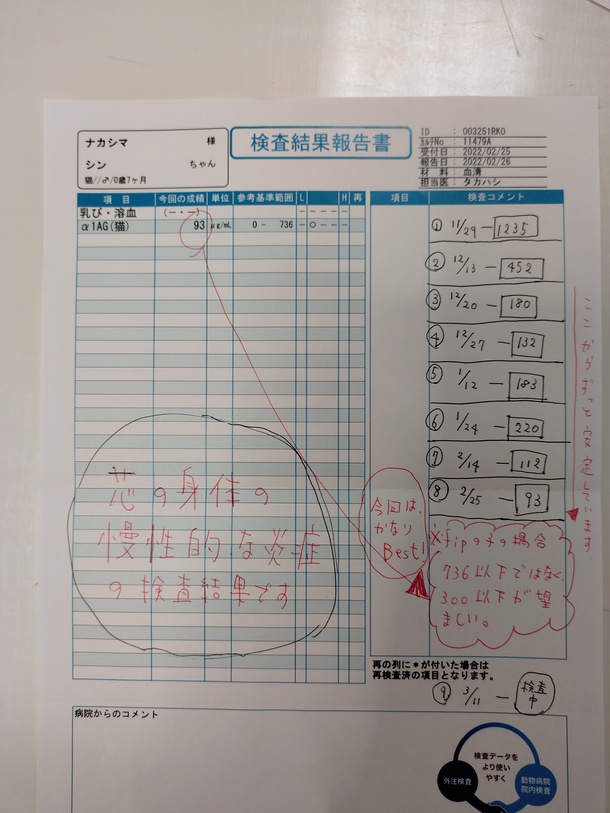 検査結果報告書
ナカシマ 様
シン ちゃん
猫//♂/0歳7ヶ月
ID : 003251RK0
ｶﾙﾃNo : 11479A
受付日 : 2022/02/25
報告日 : 2022/02/26
材 料 : 血清
担当医 : タカハシ
項 目 今回の成績 単位 参考基準範囲 L H 再 項目 検査コメント
乳び・溶血 (－・－) － － － －
α1AG(猫) 93 μg/mL 0 - 736 － ○ － － －
① 11/29 - 1235
② 12/13 - 452
③ 12/20 - 180
④ 12/27 - 132
⑤ 1/12 - 183
⑥ 1/24 - 220
⑦ 2/14 - 112
⑧ 2/25 - 93
ここからずっと安定しています。
芯の身体の
慢性的な炎症
の検査結果です
今回は、
かなり
Best!
※fipの子の場合
736以下ではなく、
300以下が望
ましい。
再の列に＊が付いた場合は
再検査済の項目となります。
⑨ 3/11 - 検査中
病院からのコメント
検査データを
より使い
やすく
外注検査
動物病院
院内検査